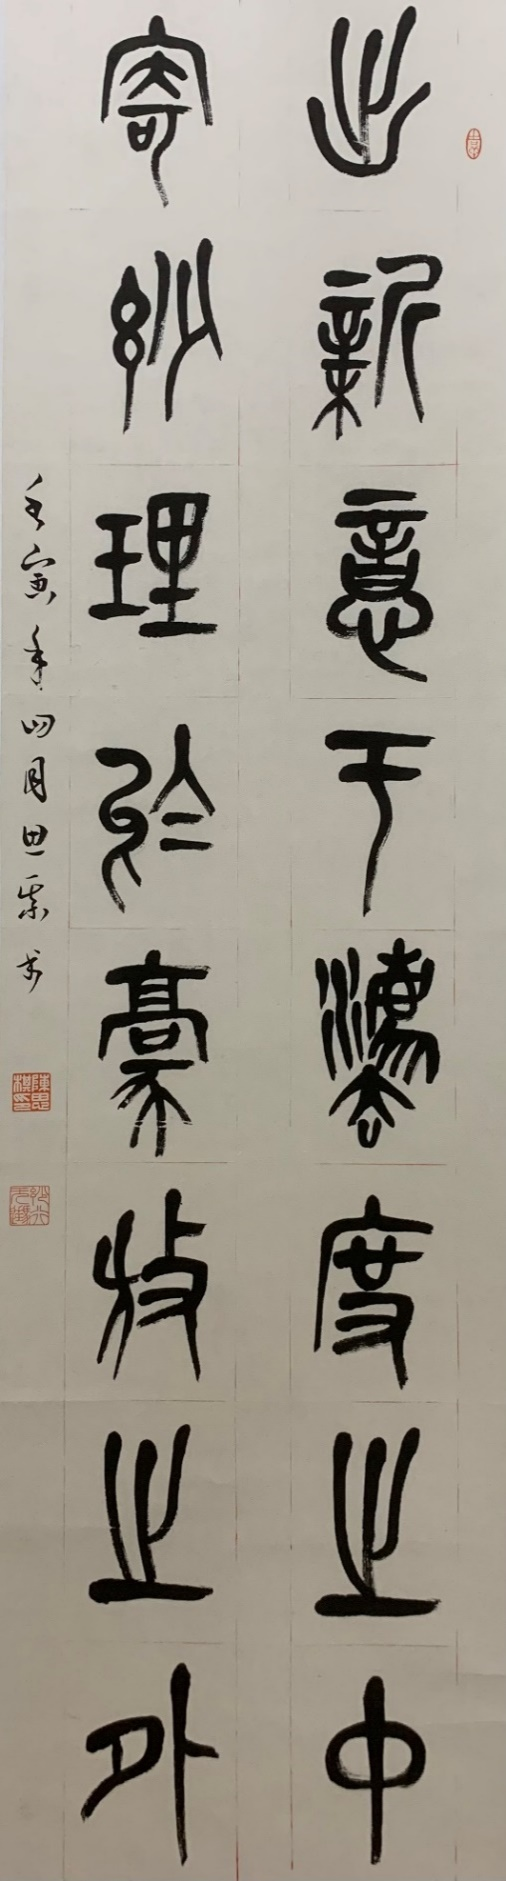 出新意于灋度之中
寄妙理於豪放之外
壬寅年四月思霖书